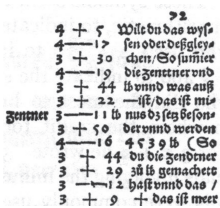 4 + Wiltu das wys-
4 — 17 sen oder deßgley-
3 + 30 chen/So sumier
4 — 19 die zenttner vnd
3 + 44 lb vnnd was auß
3 + 22 —ist/das ist mi-
Zentner 3 — 11 lb nus dz setz beson-
3 + 50 der vnnd werden
4 — 16 4539 lb (So
3 + 44 du die zendtner
3 + 29 zů lb gemachett
3 — 12 hast vnnd das /
3 + das ist meer